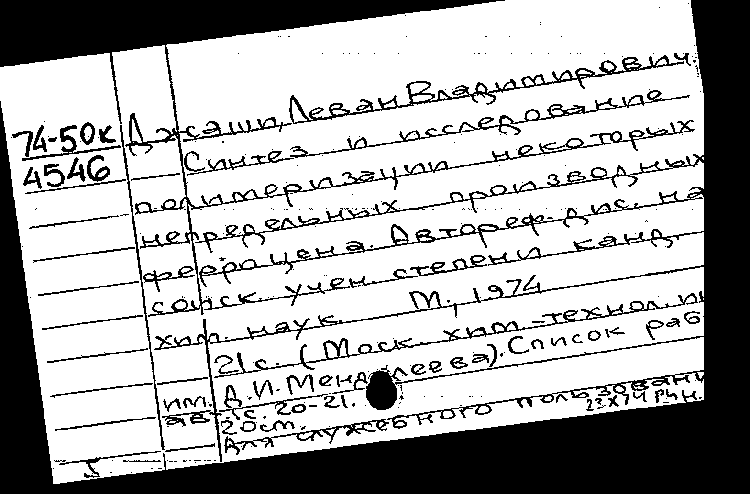 74-50к
4546
Джаши, Леван Владимирович.
Синтез и исследование
полимеризации некоторых
непредельных производных
ферроцена. Автореф. дис. на
соиск. учен. степени канд.
хим. наук. М., 1974
21 с. (Моск. хим.-технол. ин
им. Д.И. Менделеева). Список раб
авт.: с. 20-21.
20 см.
Для служебного пользовани